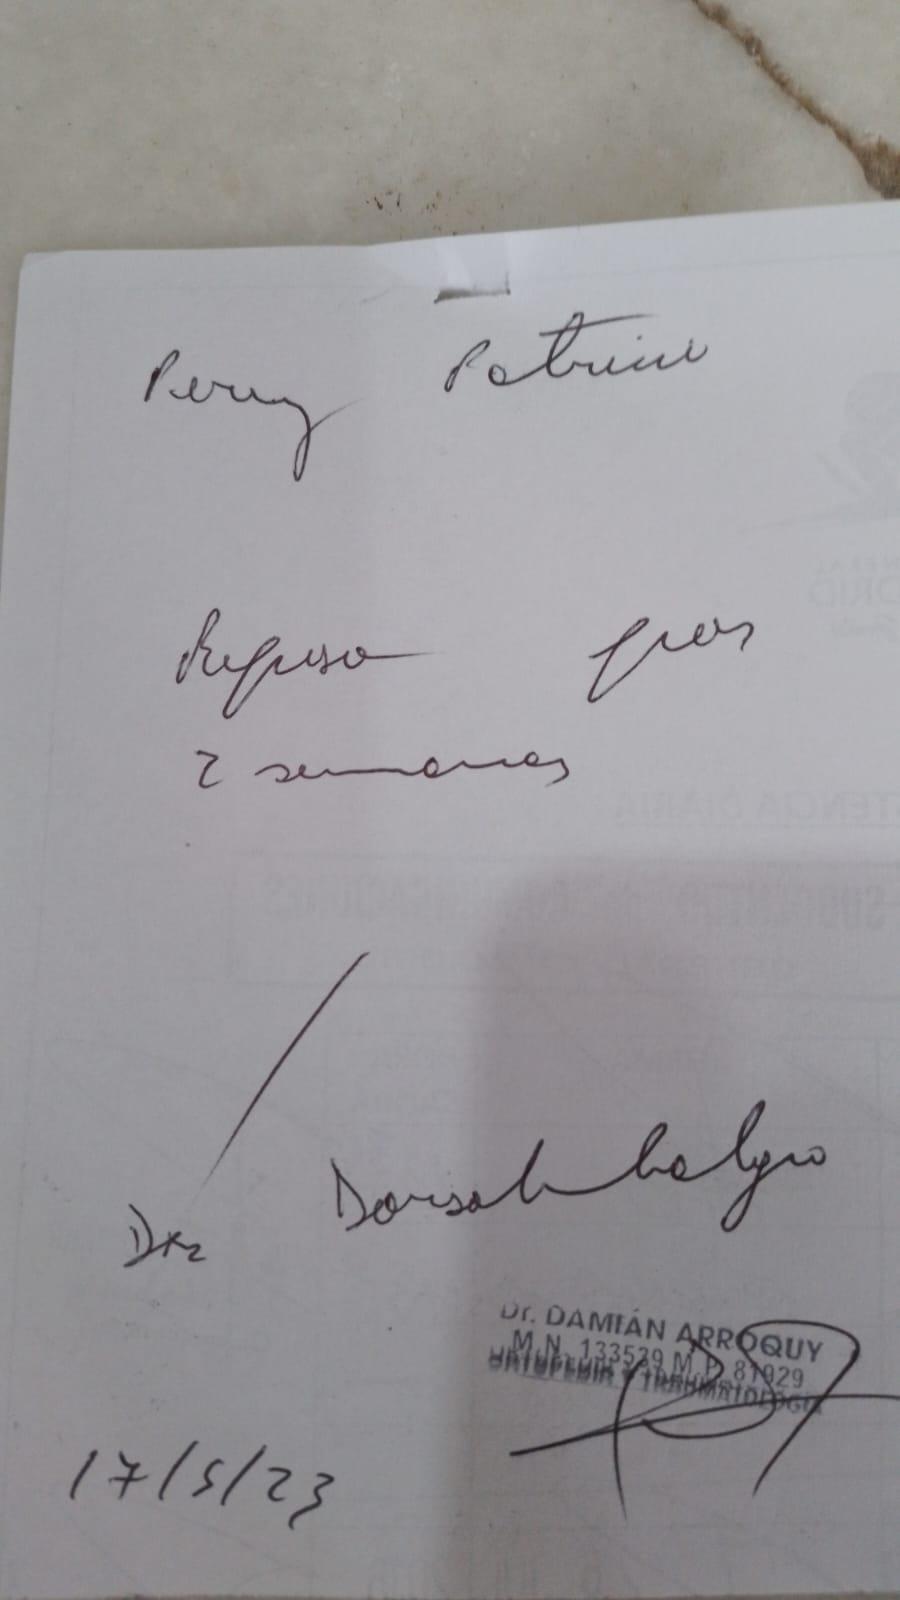 Perez Patricia
Reposo por
2 semanas
Dx Dorsolumbalgia
Dr. DAMIÁN ARROQUY
M.N. 133539 M.P. 81929
ORTOPEDIA Y TRAUMATOLOGIA
17/5/23